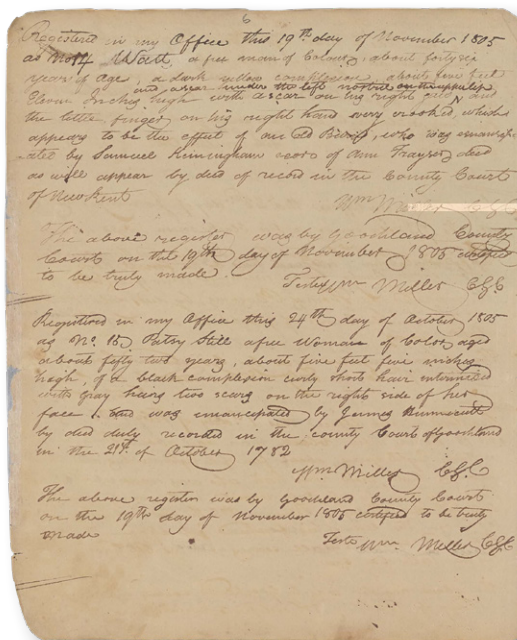 6
Registered in my Office this 19th day of November 1805
as No 14 Watt a free man of Colour, about forty six
years of Age, a dark yellow complexion, about five feet
and a scar under the left nostril on the upper lip
Eleven Inches high with a scar on his right and
the little finger on his right hand very crooked, which
appears to be the effect of an old , who was emancip
ated by Samuel exor of Ann decd
as will appear by deed of record in the County Court
of New Kent
Wm Miller C G C
The above register was by Goochland County
Court on the 19th day of November 1805 certified
to be truly made.
Teste Wm Miller C G C
Registered in my Office this 24th day of October 1805
as No. 15 Betsy a free Woman of Color aged
about fifty two years, about five feet five inches
high, of a black complexion curly short hair intermixed
with gray hairs two scars on the right side of her
face and was emancipated by James
by deed duly recorded in the county Court of Goochland
in the 21st of October 1782
Wm Miller C G C
The above register was by Goochland County Court
on the 19th day of November 1805 certified to be truly
made
Teste Wm Miller C G C